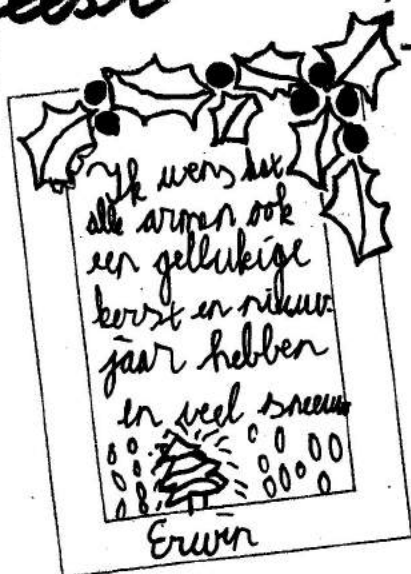 Ik wens dat
alle armen ook
een gellukige
kerst en nieuw-
jaar hebben
en veel sneeuw
Erwin